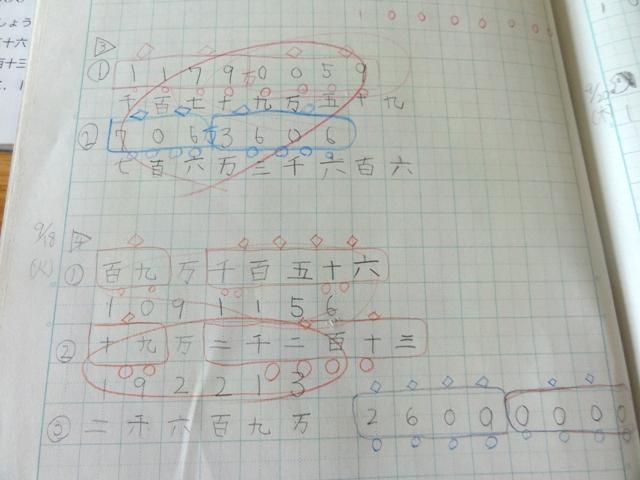 しょう
十六
百十三
1 0 0 0 0 0 0 0
3
① 1 1 7 9 万 0 0 5 9
千百七十九万五十九
② 7 0 6 万 3 6 0 6
七百六万三千六百六
9/18
4
① 百九万千百五十六
1 0 9 1 1 5 6
② 十九万二千二百十三
1 9 2 2 1 3
③ 二千六百九万
2 6 0 0 0 0 0 0